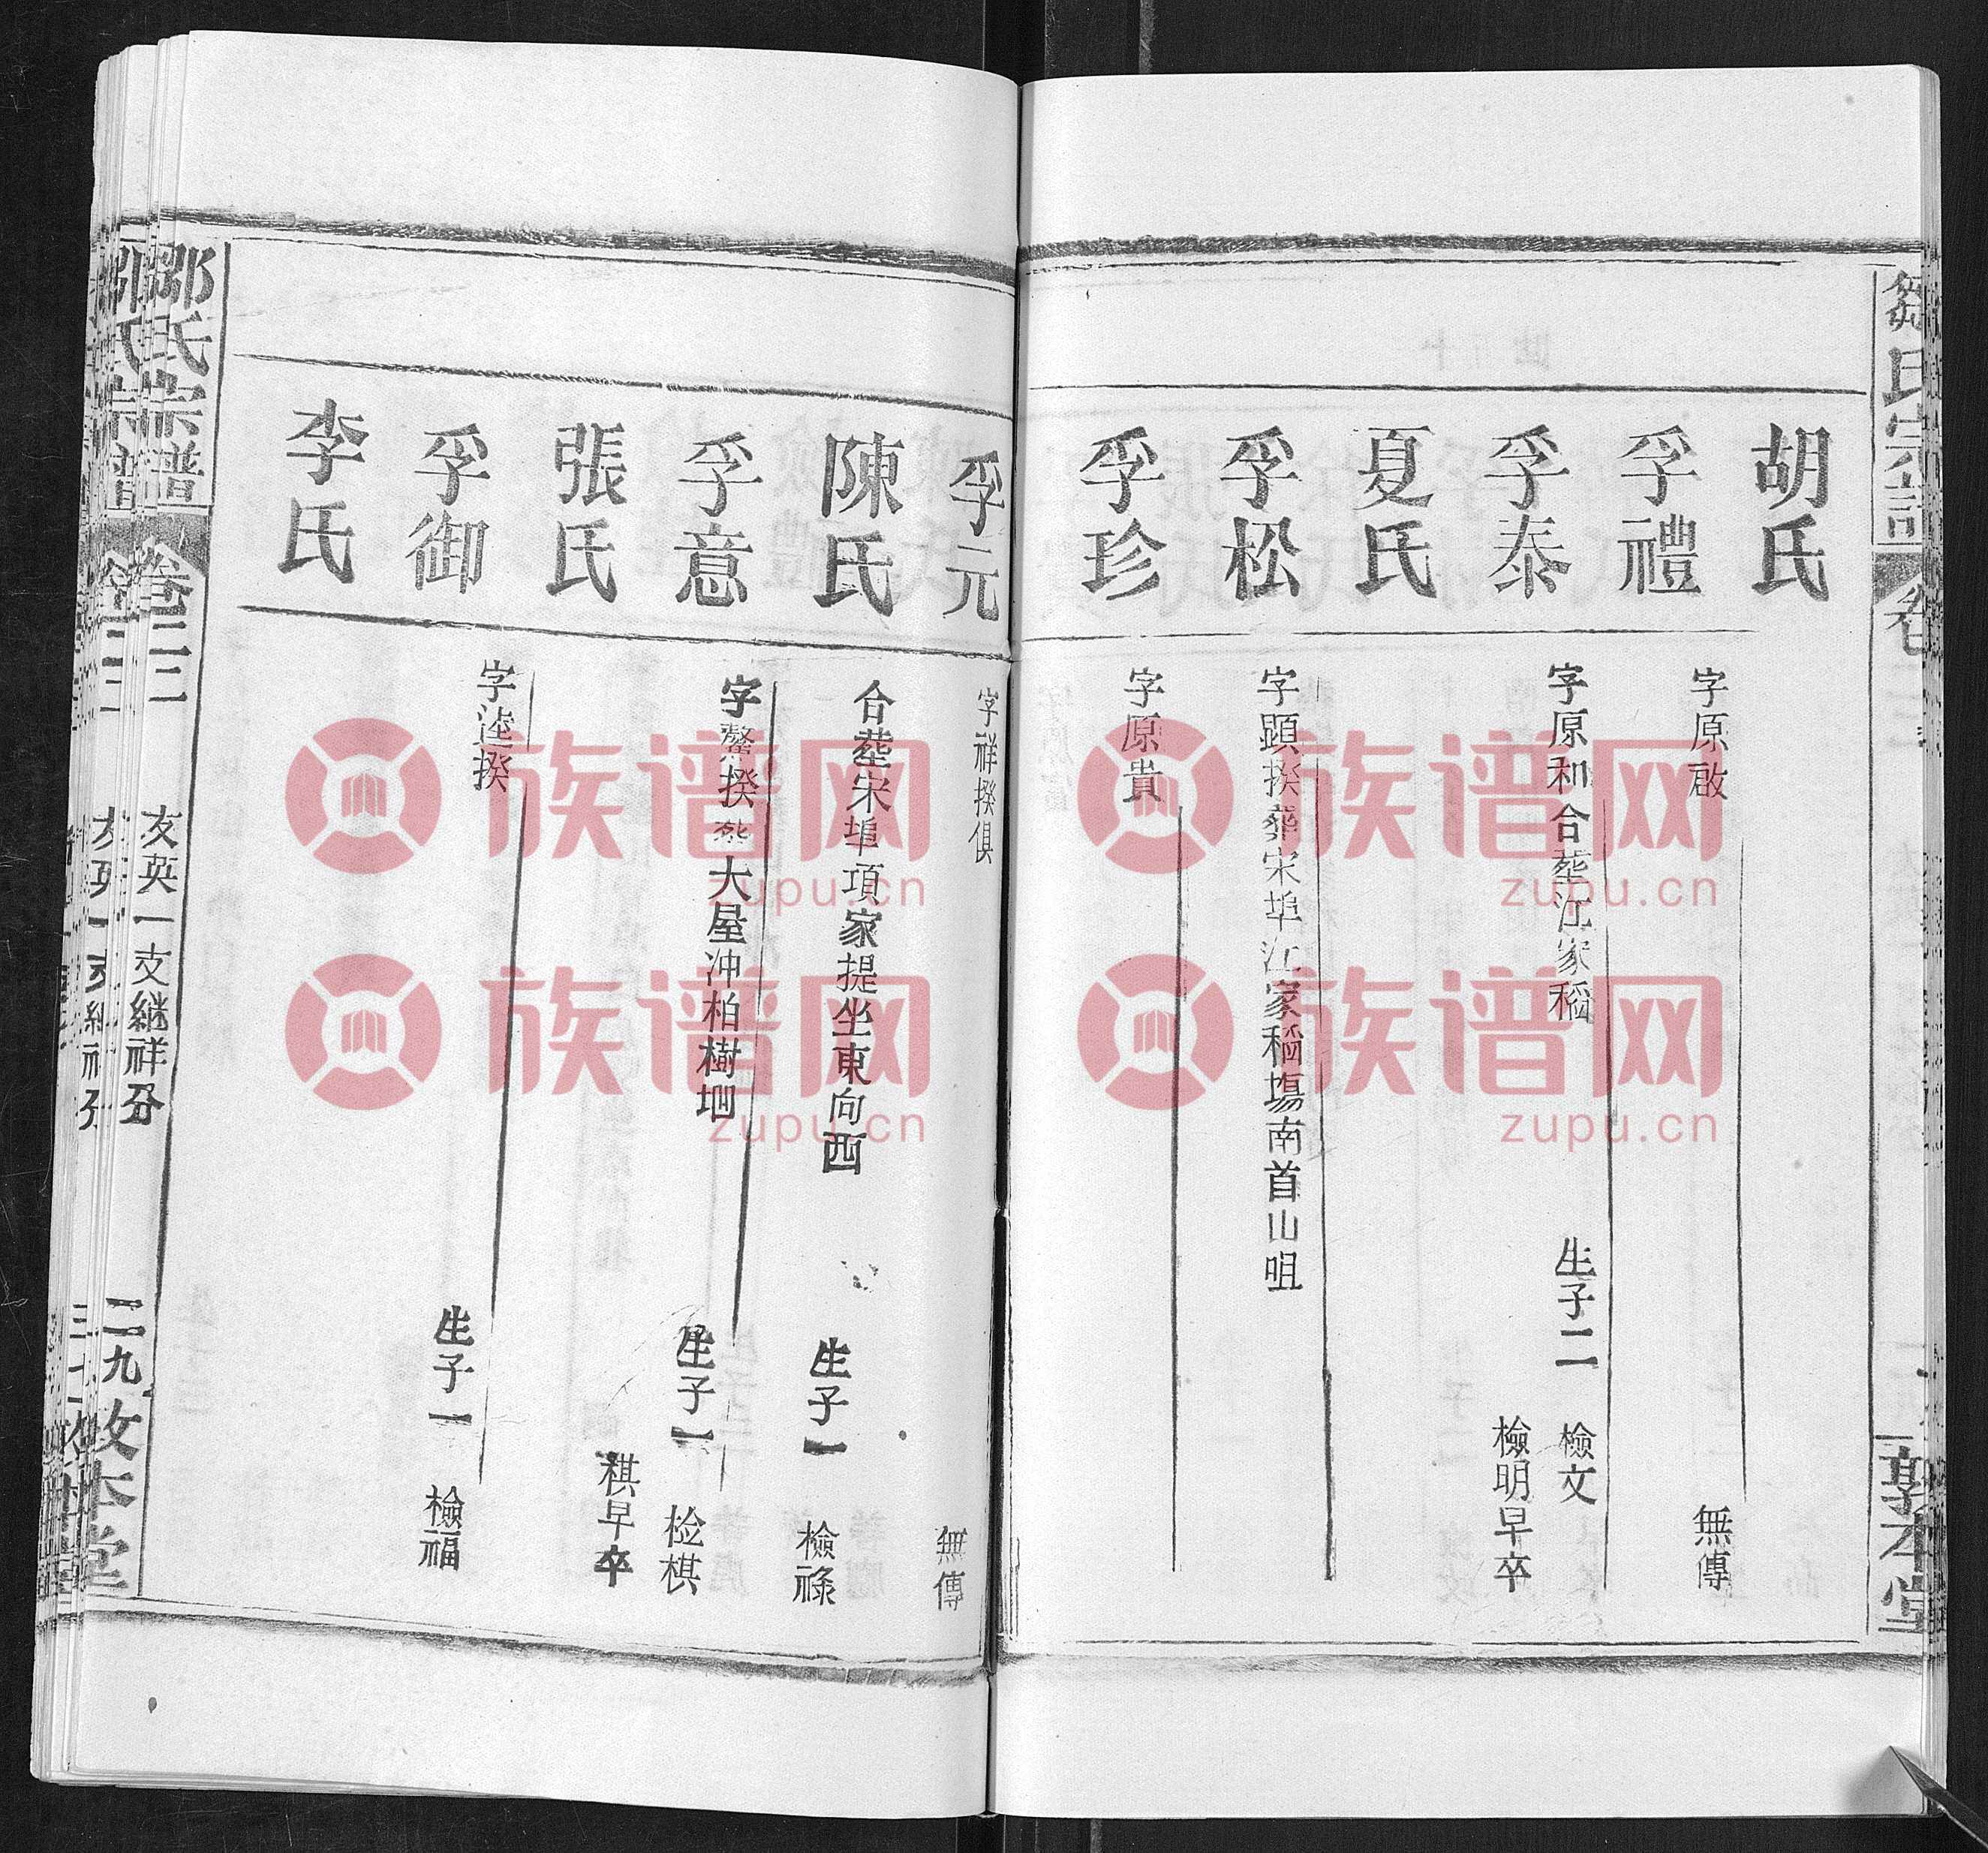 鄒氏宗譜
卷
敦本堂
胡氏
孚禮
字原啟
無傳
孚泰
字原和合塟江家稻
生子二
檢文
檢明早卒
夏氏
孚松
字顯揆塟宋埠江家稻塲南首山咀
孚珍
字原貴
孚元
字祥揆俱
無傳
陳氏
合塟宋埠項家提坐東向西
生子一
檢祿
孚意
字鰲揆塟大屋冲柏樹
生子一
检棋
棋早卒
張氏
孚御
字逵揆
生子一
檢福
李氏
鄒氏宗譜
卷三二
友英一支継祥分
二九
敦本堂
族谱网
zupu.cn
族谱网
zupu.cn
族谱网
zupu.cn
族谱网
zupu.cn